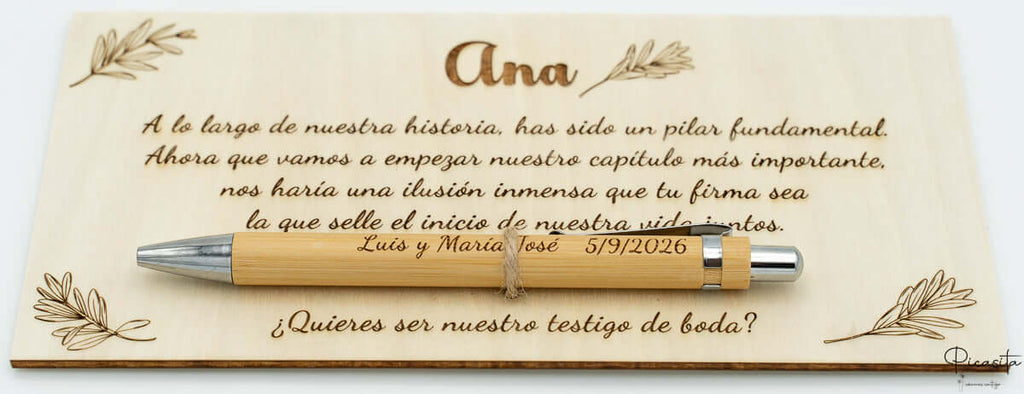 Ana
A lo largo de nuestra historia, has sido un pilar fundamental.
Ahora que vamos a empezar nuestro capítulo más importante,
nos haría una ilusión inmensa que tu firma sea
la que selle el inicio de nuestra vida juntos.
Luis y María José 5/9/2026
¿Quieres ser nuestro testigo de boda?
Picasita